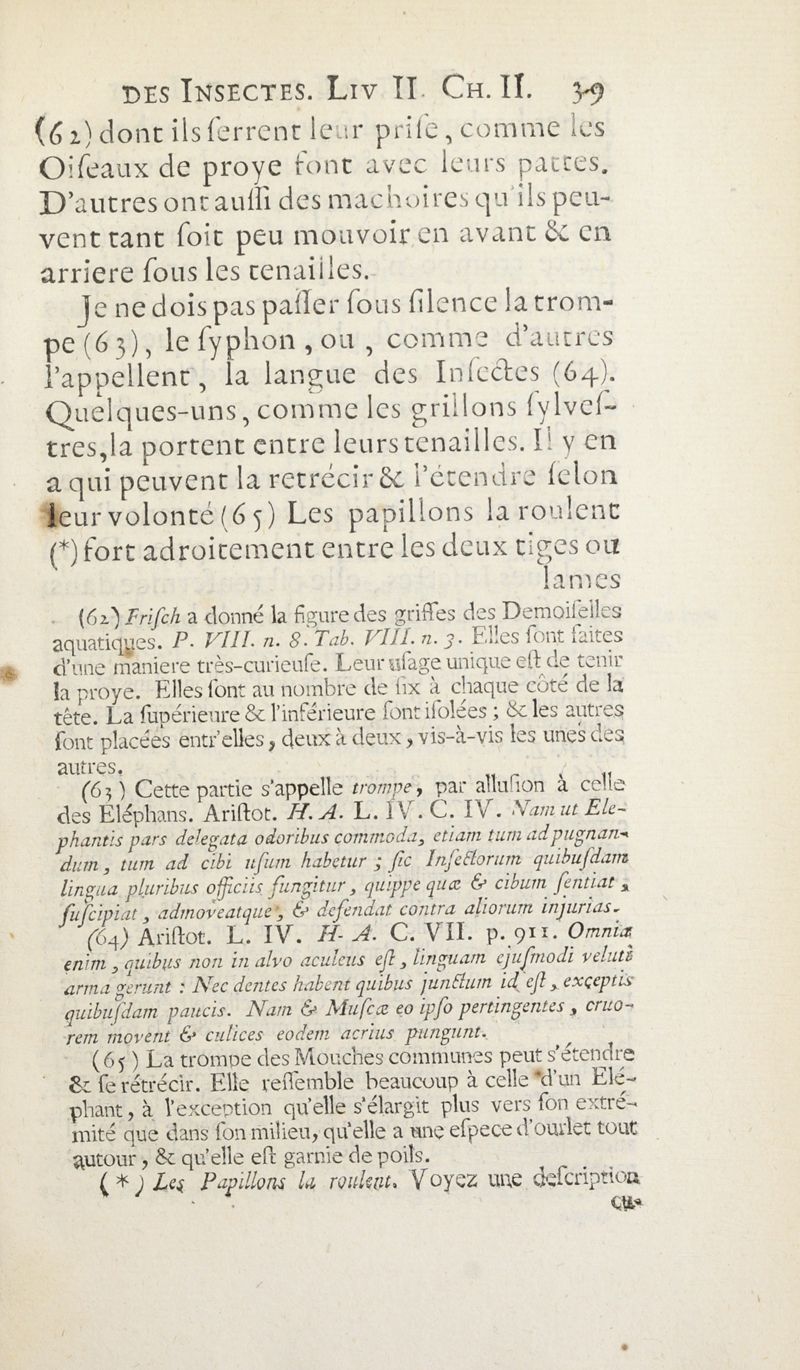 DES INSECTES. LIV II. CH. II. 39
(62) dont ils ſerrent leur priſe, comme les
Oiſeaux de proye font avec leurs pattes.
D'autres ont auſſi des machoires qu'ils peu-
vent tant ſoit peu mouvoir en avant & en
arriere ſous les tenailles.
Je ne dois pas paſſer ſous ſilence la trom-
pe (63), le ſyphon, ou, comme d'autres
l'appellent, la langue des Inſectes (64).
Quelques-uns, comme les grillons ſylveſ-
tres, la portent entre leurs tenailles. Il y en
a qui peuvent la retrécir & l'étendre ſelon
leur volonté (65) Les papillons la roulent
(*) fort adroitement entre les deux tiges ou
lames
(62) Friſch a donné la figure des griffes des Demoiſelles
aquatiques. P. VIII. n. 8. Tab. VIII. n. 3. Elles ſont faites
d'une maniere très-curieuſe. Leur uſage unique eſt de tenir
la proye. Elles ſont au nombre de ſix à chaque côté de la
tête. La ſupérieure & l'inférieure ſont iſolées ; & les autres
ſont placées entr'elles, deux à deux, vis-à-vis les unes des
autres.
(63) Cette partie s'appelle trompe, par alluſion à celle
des Eléphans. Ariſtot. H. A. L. IV. C. IV. Nam ut Ele-
phantis pars delegata odoribus commoda, etiam tum ad pugnan-
dum, tum ad cibi uſum habetur ; ſic Inſectorum quibuſdam
lingua pluribus officiis fungitur, quippe quæ & cibum ſentiat,
ſuſcipiat, admoveatque, & defendat contra aliorum injurias.
(64) Ariſtot. L. IV. H. A. C. VII. p. 911. Omnia
enim, quibus non in alvo aculeus eſt, linguam ejuſmodi veluti
arma gerunt : Nec dentes habent quibus junctum id eſt, exceptis
quibuſdam paucis. Nam & Muſcæ eo ipſo pertingentes, cruo-
rem movent & culices eodem acrius pungunt.
(65) La trompe des Mouches communes peut s'étendre
& ſe rétrécir. Elle reſſemble beaucoup à celle d'un Elé-
phant, à l'exception qu'elle s'élargit plus vers ſon extré-
mité que dans ſon milieu, qu'elle a une eſpece d'ourlet tout
autour, & qu'elle eſt garnie de poils.
(*) Les Papillons la roulent. Voyez une deſcription
cu-